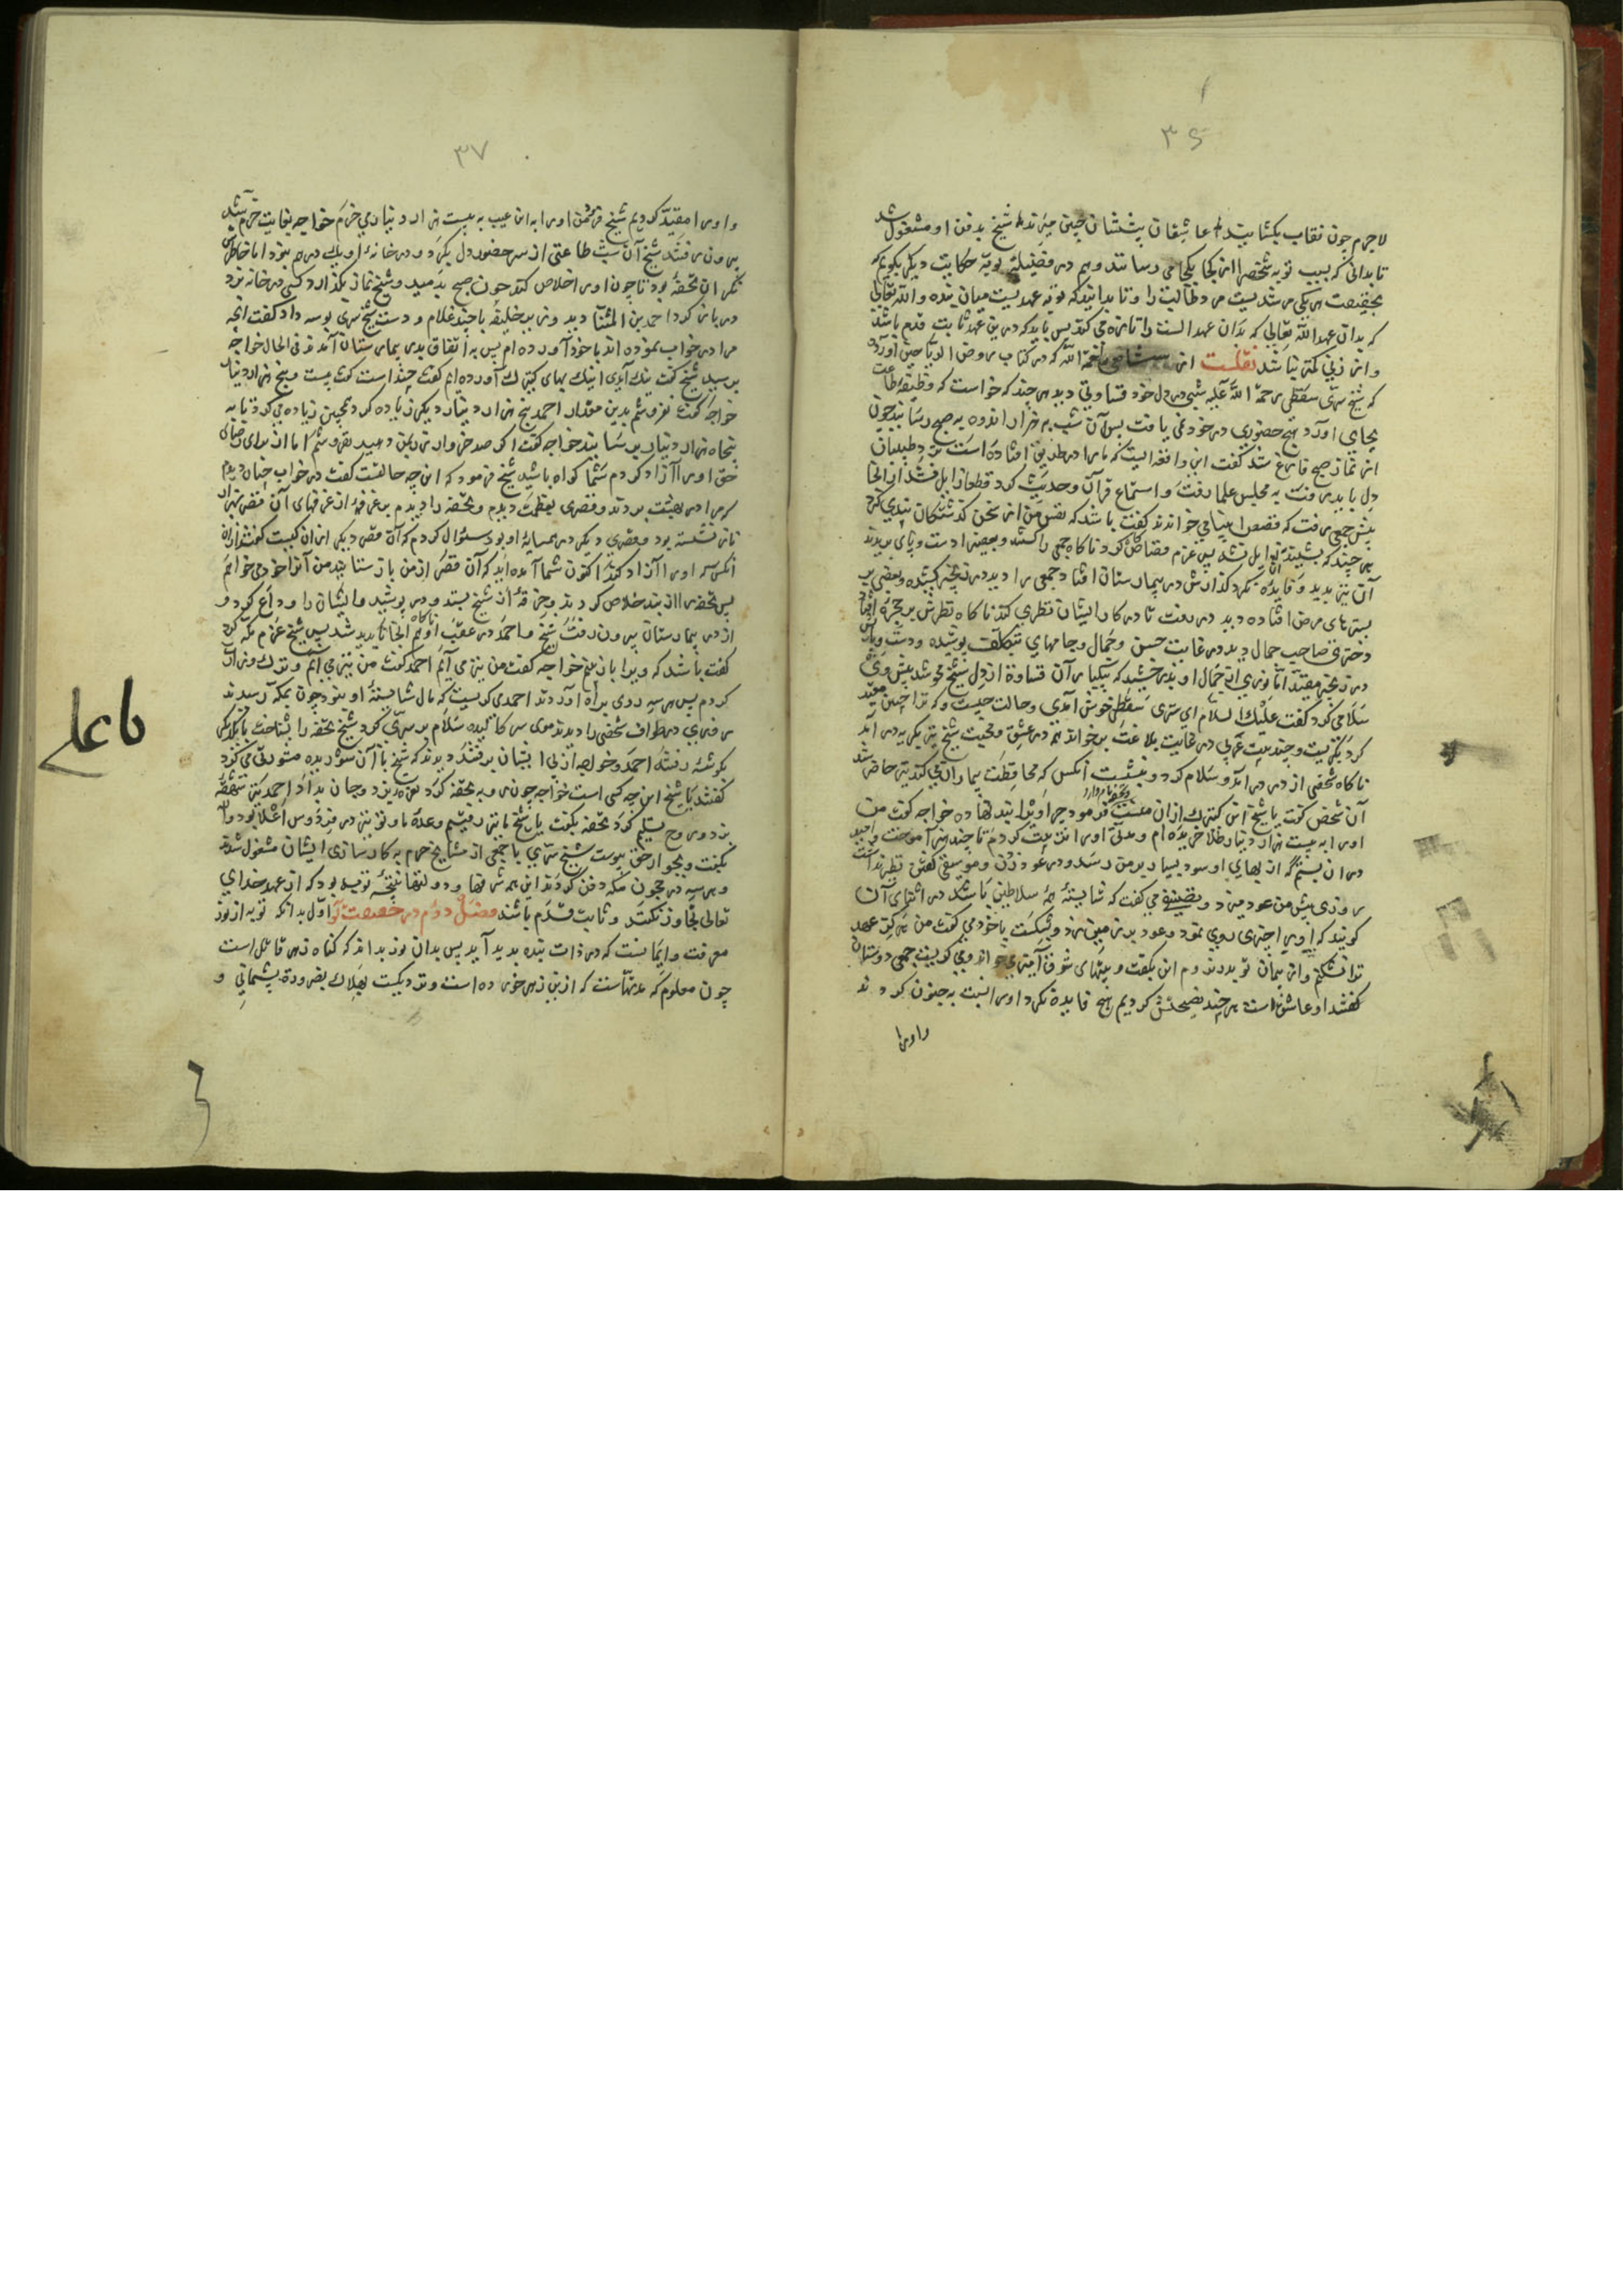 ۳۶
لاجرم چون نقاب بکشایند عاشقان پیششان چنین میرند شیخ بدفن او مشغول شد
تا بدانی که بسبب توبه شخص را از کجا بکجا می رسانند وهم در فضیلت توبه حکایت دیکر بکویم که
بحقیقت هر یکی مرشدیست مر طالب را و تا بدانید که توبه عهدیست میان بنده والله تعالی
که بدان عهد الله تعالی که بدان عهد الست را تازه می کند پس باید که درین عهد ثابت قدم باشد
و از زنی کمتر نباشد نقلست از رحمة الله که در کتاب روض الریاحین آورده
که شیخ سری سقطی رحمة الله علیه شبی در دل خود قساوتی دید هر چند که خواست که وظیفه طاعت
بجای آورد هیچ حضوری در خود نمی یافت پس آن شب به هزار اندوه به صبح رسانید چون
از نماز صبح فارغ شد کفت این واقعه ایست که ما را در طریق افتاده است نزد طبیبان
دل باید رفت به مجلس علما رفت و استماع قرآن و حدیث کرد قطعا زایل نشد از آنجا
پیش جمعی رفت که قصص انبیا می خواندند کفت باشد که نفس من از سخن کذشتکان پندی کیرد
هر چند که بشنید زایل نشد پس عزم قصاص کاه کرد ناکاه جمعی را کشتند و بعضی را دست و پای بریدند
آن نیز بدید و فایده نکرد کذارش در بیمارستان افتاد جمعی را دید در زنجیر کشیده و بعضی بر
بسترهای مرض افتاده دید در رفت تا در کار ایشان نظری کند ناکاه نظرش بر حجره افتاد
دختری صاحب جمال دید در غایت حسن و جمال و جامهای بتکلف پوشیده و دست و پایش
در زنجیر مقید اما نوری از جمال او بدرخشید که بیکبار آن قساوة از دل شیخ محو شد پیش وی
سلام کرد کفت علیک السلام ای سری سقطی خوش آمدی و حالت چیست و که ترا چنین مقید
کرد بکریست و چند بیت عربی در غایت بلاغت بر خواند همه در عشق و محبت شیخ نیز بکریه در آمد
ناکاه شخصی از در در آمد و سلام کرد و بنشست آنکس که محافظت بیماران می کند نیز حاضر شد
آن شخص کفت یا شیخ این کنیزک از آن منست تحفه نام دارد فرمود چرا او را بند نهاده خواجه کفت من
او را به بیست هزار دینار طلا خریده ام و مدتی او را تربیت کردم تا چند هنر آموخت و امید
در آن بستم که از بهای او سود بسیار بر من رسد و در عود زدن و موسیقی کفتن نظیر نداشت
روزی پیش من عود میزد و تصنیفی می کفت که شایسته همه سلاطین باشد در اثنای آن
کویند که او را چیزی روی نمود و عود بر زمین زد و بشکست با خود می کفت من هرکز عهد
ترا نشکنم و از پیمان تو بدر نروم این بکفت و بیتهای شوق آمیز می خواند و می کریست جمعی دوستان
کفتند او عاشق است هر چند نصیحتش کردیم هیچ فایده نکرد او را نسبت به جنون کردند
و او را
۳۷
و او را مقید کردیم شیخ فرمود من او را به این عیب به بیست هزار دینار می خرم خواجه بغایت خرم شد
بیرون رفتند شیخ آن شب طاعتی از سر حضور دل بکرد و در خانه او یک درم نبود اما خاطرش
نکران تحفه بود تا چون او را خلاص کند چون صبح بدمید و شیخ نماز بکذارد کسی در خانه بزد
در باز کرد احمد بن المثنا دید وزیر خلیفه با چند غلام و دست شیخ سری بوسه داد کفت آنچه
مرا در خواب نموده اند با خود آورده ام پس به اتفاق بدر بیمارستان آمدند فی الحال خواجه
برسید شیخ کفت نیک آمدی اینک بهای کنیزک آورده ایم کفت چند است کفت بیست و پنج هزار دینار
خواجه کفت نفروشم بدین مقدار احمد پنج هزار دینار دیکر زیاده کرد همچنین زیاده می کرد تا به
پنجاه هزار دینار برسانید خواجه کفت اکر صد خروار زر بمن دهید نفروشم اما از برای رضای
حق او را آزاد کردم شما کواه باشید شیخ فرمود که این چه حالتست کفت در خواب چنان دیدم
که مرا در بهشت بردند و قصری بعظمت دیدم و تحفه را دیدم بر غرفهٔ از غرفهای آن قصر بهزار
ناز نشسته بود و قصری دیکر در همسایهٔ او بود سئوال کردم که آن قصر دیکر از آن کیست کفتند از آن
آنکس که او را آزاد کند اکنون شما آمده اید که آن قصر از من باز ستانید من آنرا خود می خواهم
پس تحفه را از بند خلاص کردند و خرقهٔ از شیخ بستد و در پوشید و ایشان را وداع کرد و
از در بیمارستان بیرون رفت شیخ و احمد در عقب او ناکاه هم آنجا ناپدید شد پس شیخ عزم مکه کرد
کفت باشد که ویرا باز بینم خواجه کفت من نیز می آیم احمد کفت من نیز می آیم و ترک وزارت
کردم پس هر سه روی براه آوردند احمد می کریست که مال شایستهٔ او نبود چون بمکه رسیدند
روزی در طواف شخصی را دیدند موی سر کالیده سلام بر سری کرد شیخ تحفه را بشناخت با یکدیکر
بکوشهٔ رفتند احمد و خواجه از پی ایشان برفتند دیدند که شیخ با آن شوریده مشورتی می کرد
کفتند یا شیخ این چه کسی است خواجه چون روبه تحفه کرد نعره بزد و جان بداد احمد نیز شهقهٔ
بزد و روح تسلیم کرد تحفه بکفت یا شیخ ما نیز رفتیم وعدهٔ ما و تو نیز در فردوس اعلا بود و آن
بکفت و بجوار حق پیوست شیخ سری با جمعی از مشایخ حرم به کارسازی ایشان مشغول شدند
و هر سه در حجون مکه دفن کردند این همه شرفها و دولتها نتیجهٔ توبه بود که از عهد خدای
تعالی تجاوز نکنند و ثابت قدم باشند فصل دوم در حقیقت توبه اول بدانکه توبه از نور
معرفت و ایمانست که در ذات بنده بدید آید پس بدان نور بداند که کناه زهر قاتل است
چون معلوم که مدتهاست که از این زهر خورده است و نزدیکست بهلاک بضرورة پشیمانی و